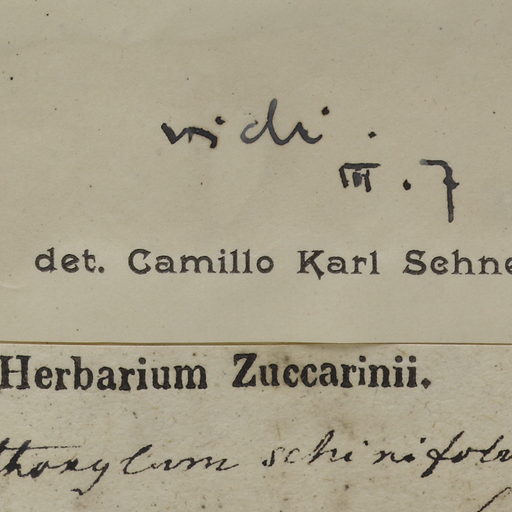 vidi.
III.7
det. Camillo Karl Schne
Herbarium Zuccarinii.
thoxylum schinifoliu